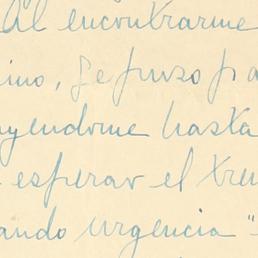 Al encontrarme
ino, se puso pa
yendome hasta
esperar el tren
ando urgencia "